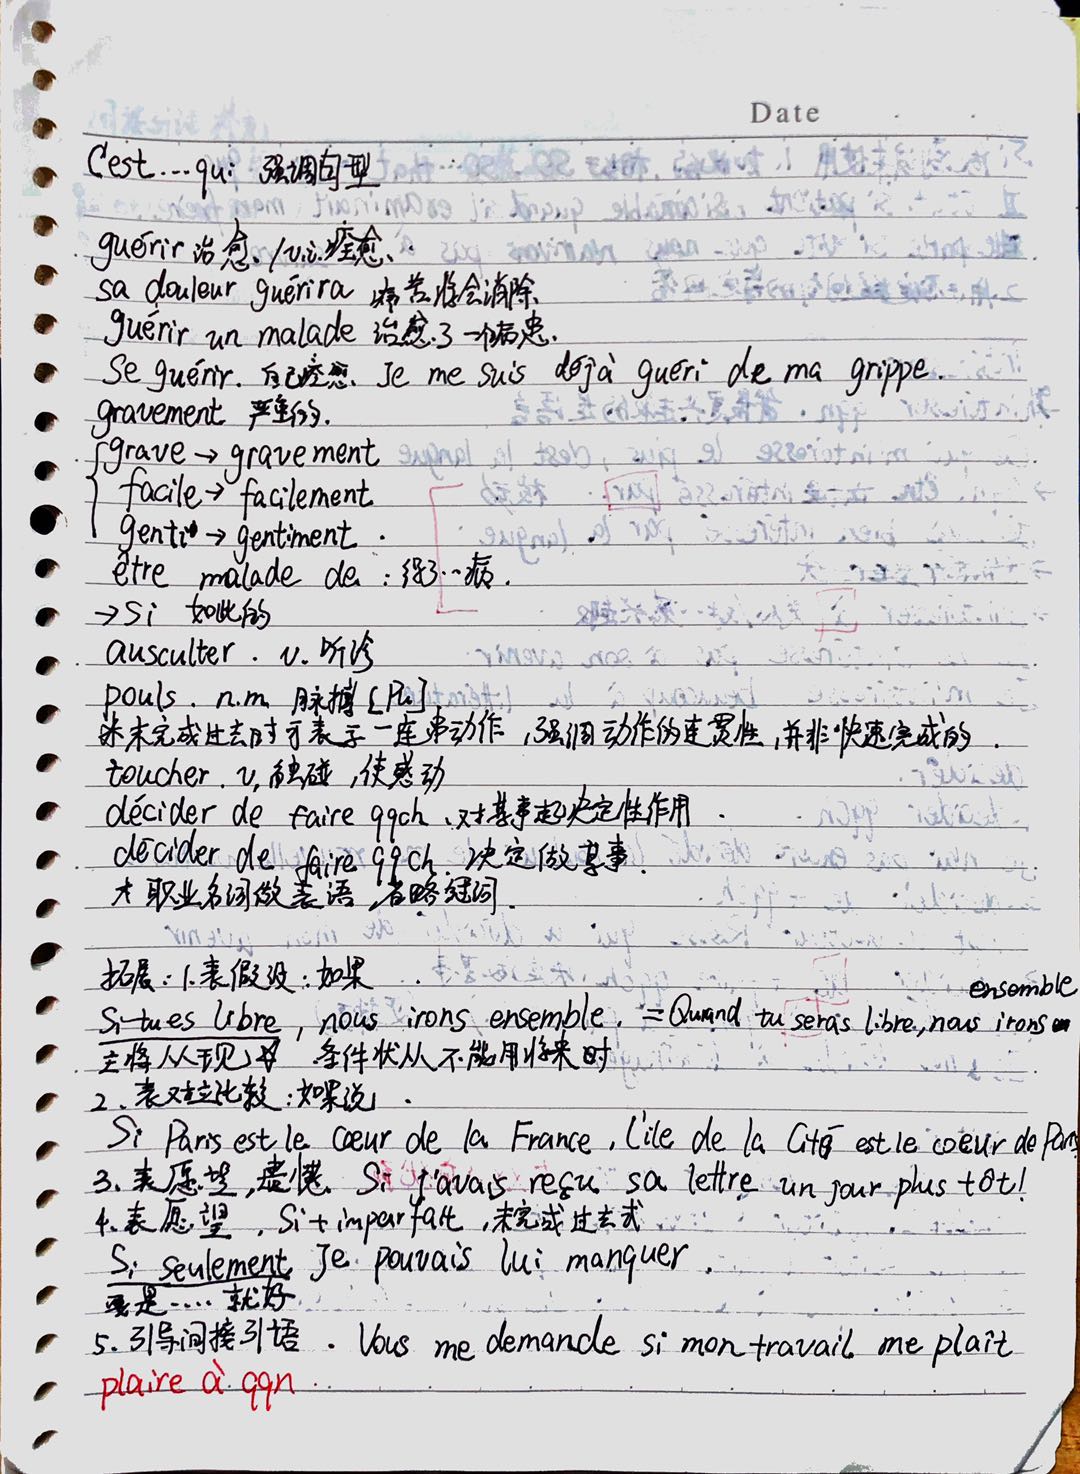 Date
C'est...qui 强调句型
guérir 治愈./v.i.痊愈.
sa douleur guérira 病苦将会消除
guérir un malade 治愈了一个病患.
Se guérir. 自己痊愈. Je me suis déjà guéri de ma grippe.
gravement 严重的.
grave → gravement
facile → facilement
gentil → gentiment.
être malade de : 得了…病.
→ Si 如此的
ausculter. v. 听诊
pouls. n.m. 脉搏 [Pu]
※未完成过去时可表示一连串动作,强调动作的连贯性,并非快速完成的.
toucher. v, 触碰,使感动
décider de faire qqch. 对某事起决定性作用.
décider de faire qqch. 决定做某事.
☆ 职业名词做表语,省略冠词.
拓展: 1.表假设:如果.
ensemble
Si tu es libre, nous irons ensemble. = Quand tu seras libre, nous irons
主将从现 条件状从不能用将来时
2. 表对立比较:如果说.
Si Paris est le cœur de la France, L'ile de la Cité est le cœur de Paris
3. 表愿望,遗憾. Si j'avais reçu sa lettre un jour plus tôt!
4. 表愿望. Si + imparfait, 未完成过去式
Si seulement Je pouvais lui manquer.
要是....就好
5. 引导间接引语. Vous me demande si mon travail me plaît
plaire à qqn.